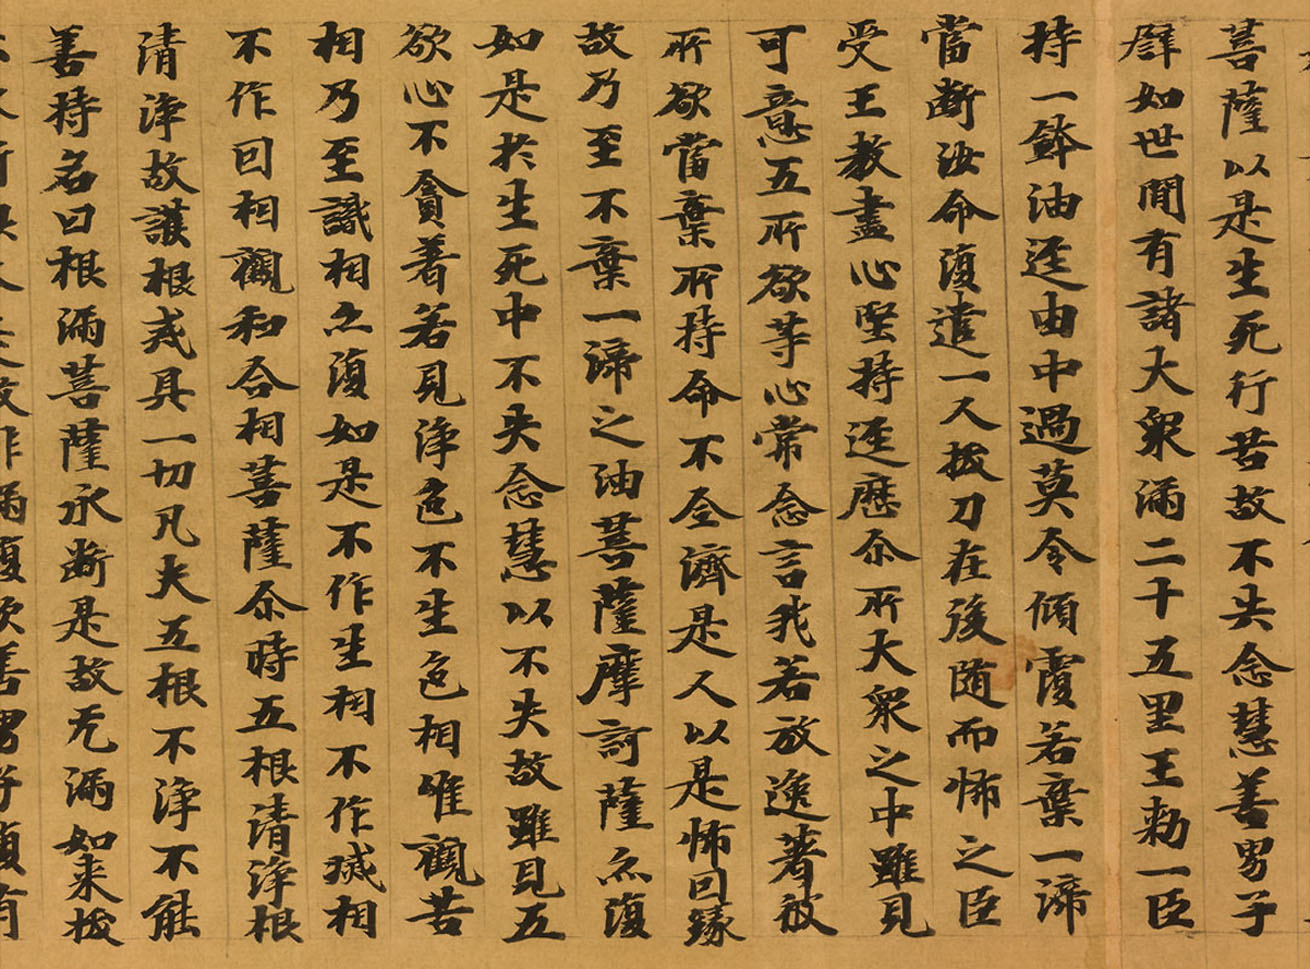 菩薩以是生死行苦故不失念慧善男子
譬如世間有諸大衆滿二十五里王勑一臣
持一鉢油逕由中過莫令傾覆若棄一渧
當斷汝命復遣一人拔刀在後隨而怖之臣
受王教盡心堅持逕歷尒所大衆之中雖見
可意五所欲等心常念言我若放逸著彼
所欲當棄所持命不全濟是人以是怖因緣
故乃至不棄一渧之油菩薩摩訶薩亦復
如是於生死中不失念慧以不失故雖見五
欲心不貪著若見淨色不生色相唯觀苦
相乃至識相亦復如是不作生相不作滅相
不作因相觀和合相菩薩尒時五根清淨根
清淨故護根戒具一切凡夫五根不淨不能
善持名曰根漏菩薩永斷是故无漏如来拔